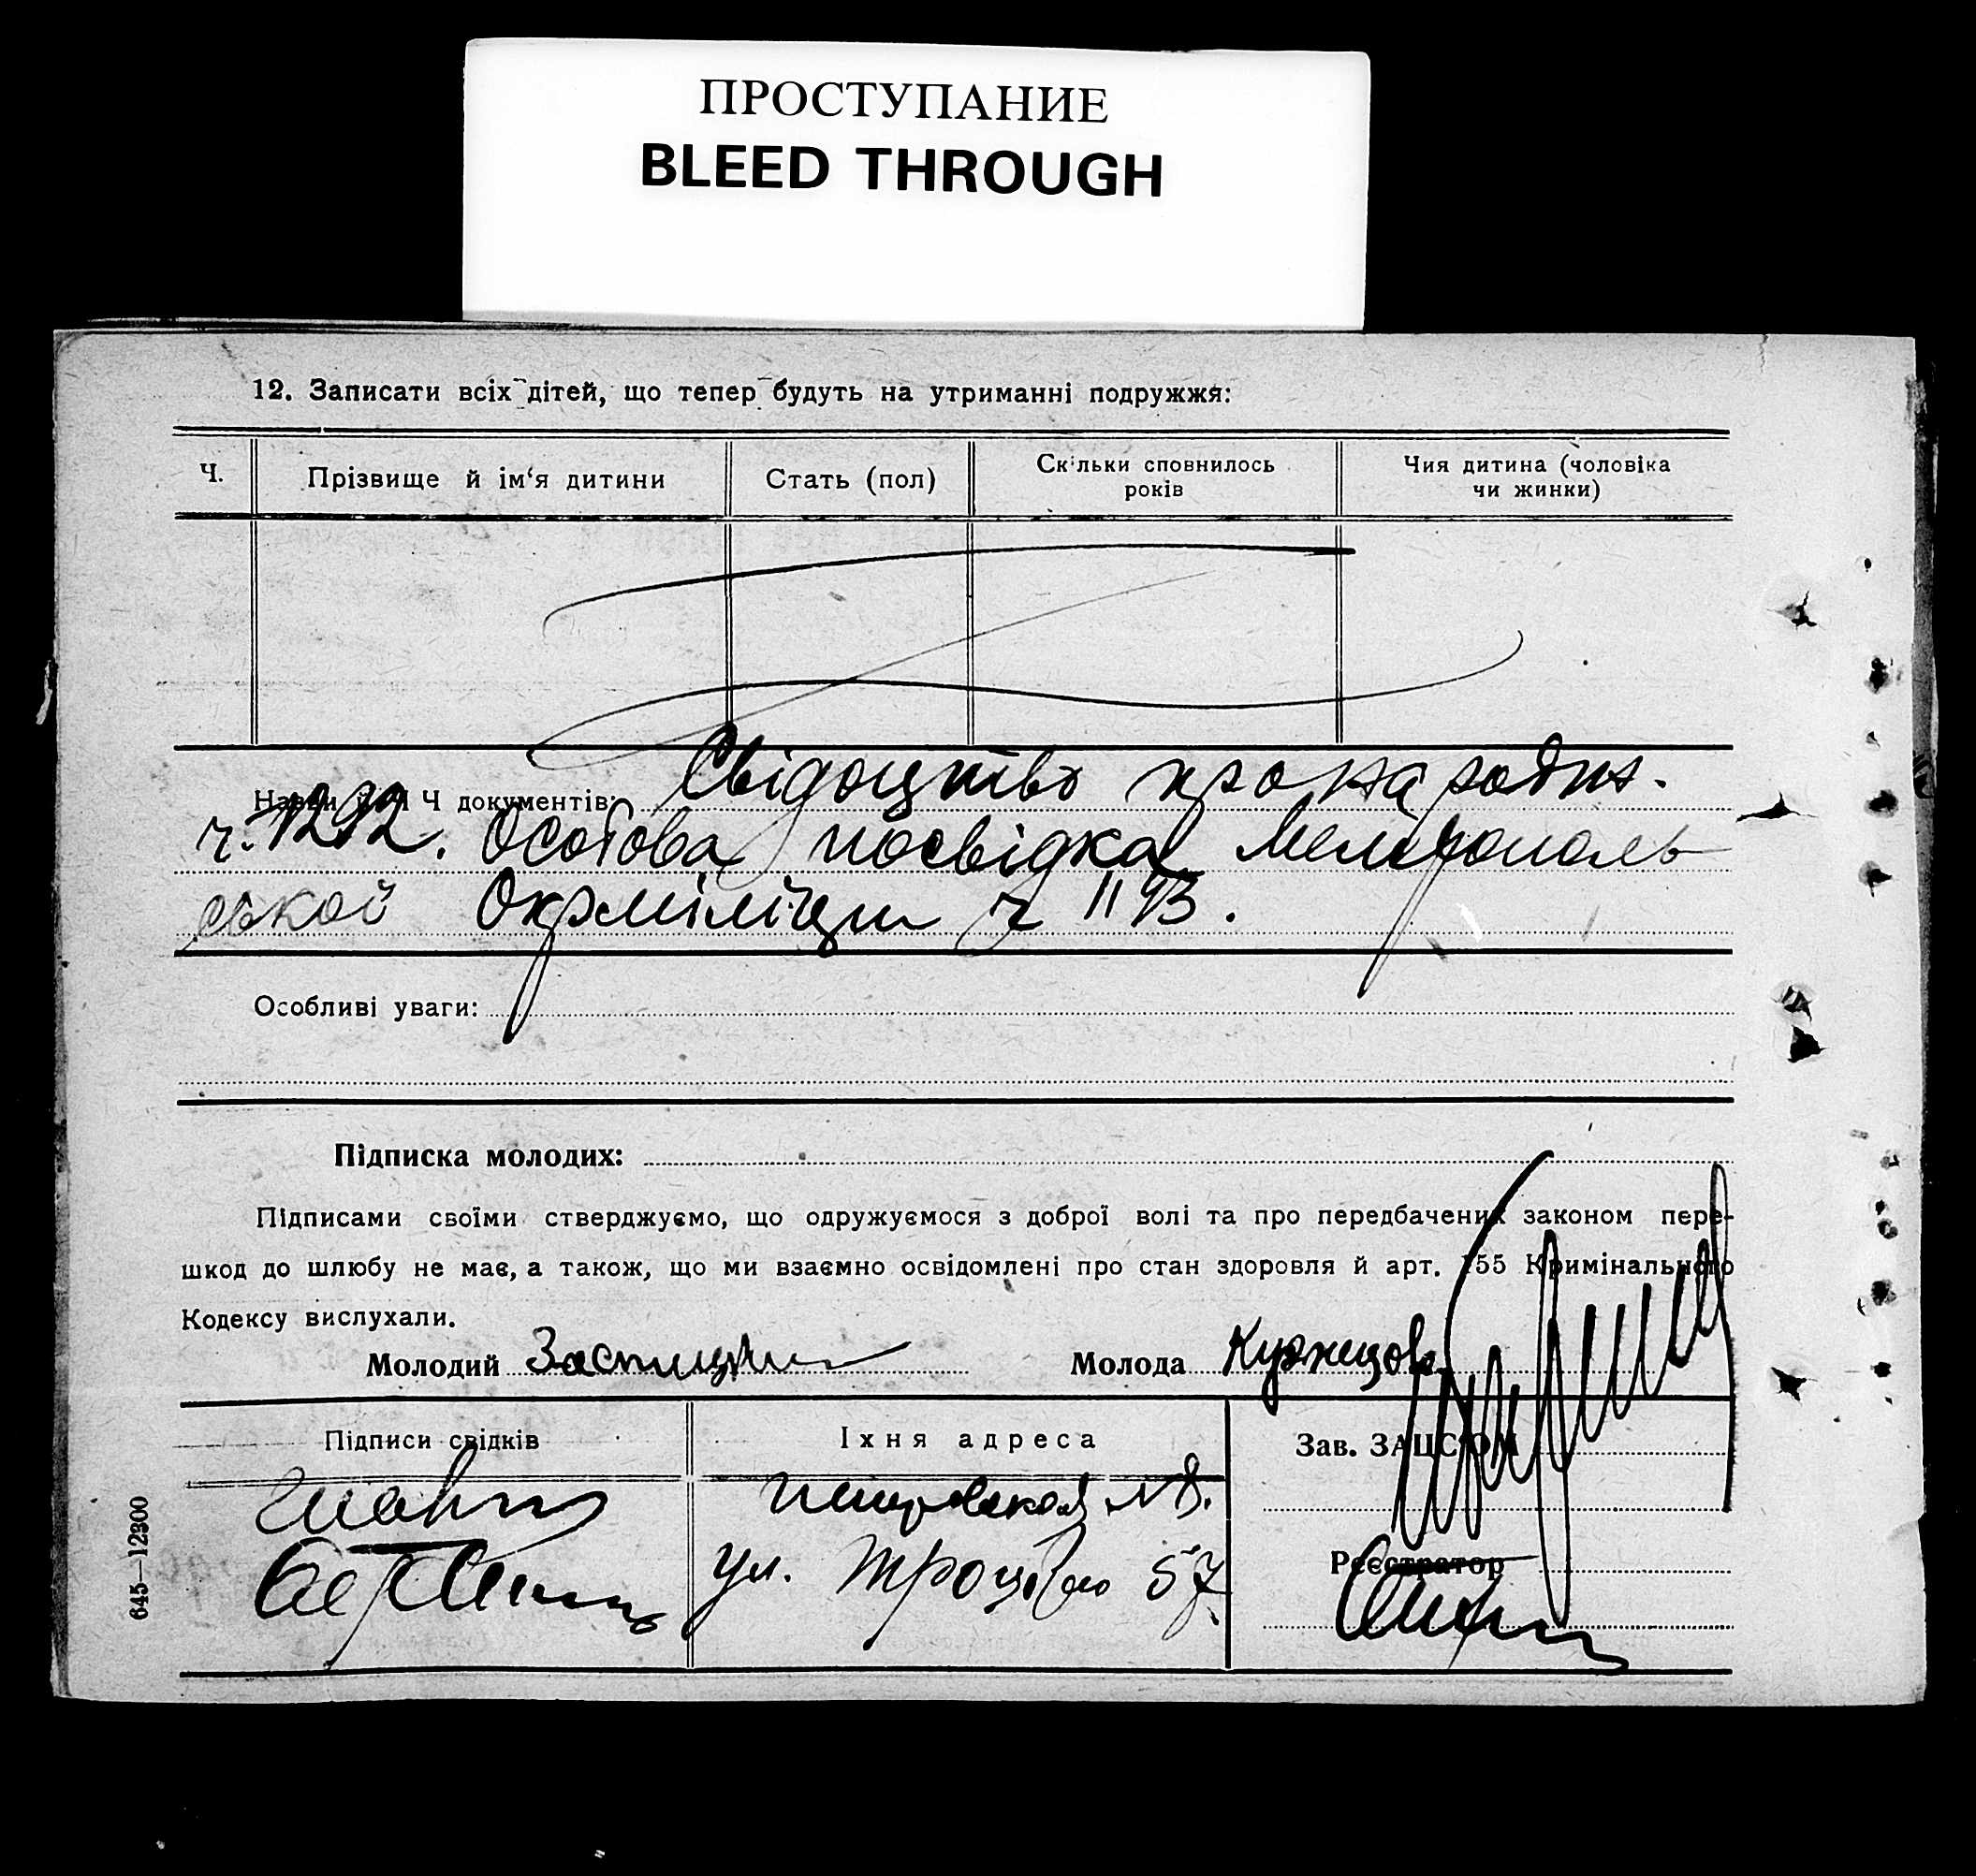 ПРОСТУПАНИЕ
BLEED THROUGH
12. Записати всіх дітей, що тепер будуть на утриманні подружжя:
Ч.
Прізвище й ім‘я дитини
Стать (пол)
Скільки сповнилось
років
Чия дитина (чоловіка
чи жинки)
Назви й Ч Ч документів: Свідоцтво про народж.
ч. 1292. Особова посвідка Мелітополь
ської Окрміліції ч 1193.
Особливі уваги:
Підписка молодих:
Підписами своїми стверджуємо, що одружуємося з доброї волі та про передбачених законом пере-
шкод до шлюбу не має, а також, що ми взаємно освідомлені про стан здоровля й арт. 155 Кримінального
Кодексу вислухали.
Молодий
Молода
Підписи свідків
Їхня адреса
Зав. ЗАЦС‘ОМ
№ 8.
ул. Троцкого 57
Реєстратор
645—12300